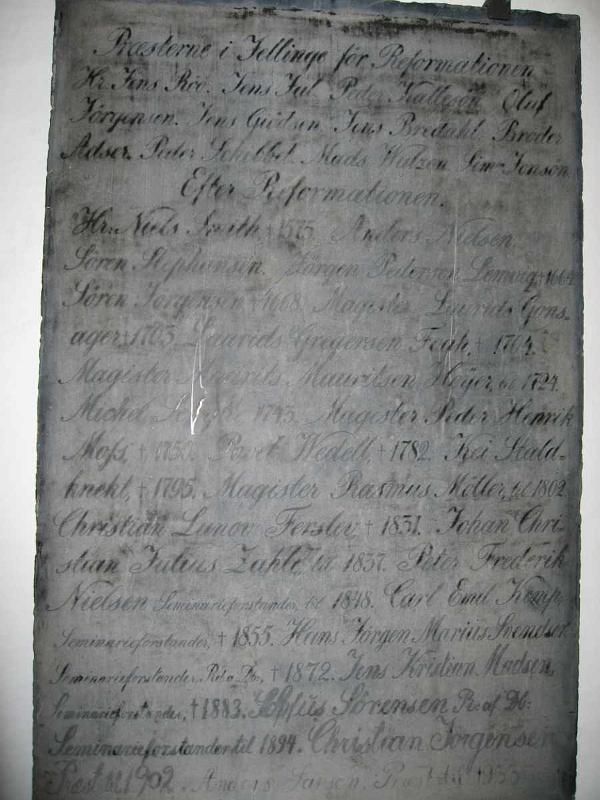 Præsterne i Jellinge før Reformationen
Hr. Jens Roo. Jens Jul Peder Kalleson Oluf
Jørgensen. Jens Gudsen Jens Bredahl Broder
Adser. Peder Schebbel. Mads Watzon Sim Jonson
Efter Reformationen.
Hr. Niels Smith † 1575. Anders Nielsen.
Søren Stephansen. Jørgen Pederson Lemvig † 1664
Søren Jørgensen † 1668. Magister Laurids Gons-
ager † 1703. Laurids Gregersen Feah, † 1704.
Magister Mourits Mauritsen Høyer, til 1724.
Michel 1743. Magister Peder Henrik
Moss, † 1755. Povel Wedell, † 1782. Kei Skald-
knekt, † 1795. Magister Rasmus Möller, til 1802.
Christian Lunov Ferslev † 1831. Johan Chri-
stian Julius Zahle, til 1837. Peter Frederik
Nielsen Seminarieforstander, til 1848. Carl Emil Komp,
Seminarieforstander, † 1855. Hans Jørgen Marius Svendsen
Seminarieforstander, R. a. Db., † 1872. Jens Kristian Madsen,
Seminarieforstander, † 1883. Sørensen R. af Db:
Seminarieforstander til 1894. Christian Jörgensen
Præst til 1902. Anders Larsen. Præst til 1933